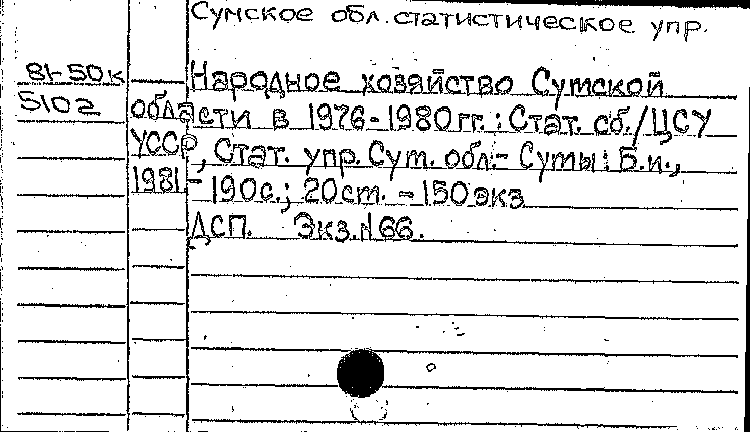 Сумское обл. статистическое упр.
81-50к Народное хозяйство Сумской
5102 области в 1976-1980 гг.: Стат. сб./ЦСУ
УССР, Стат. упр. Сум. обл.- Сумы: Б.и.,
1981.- 190с.; 20ст. - 150экз
ДСП. Экз.№66.